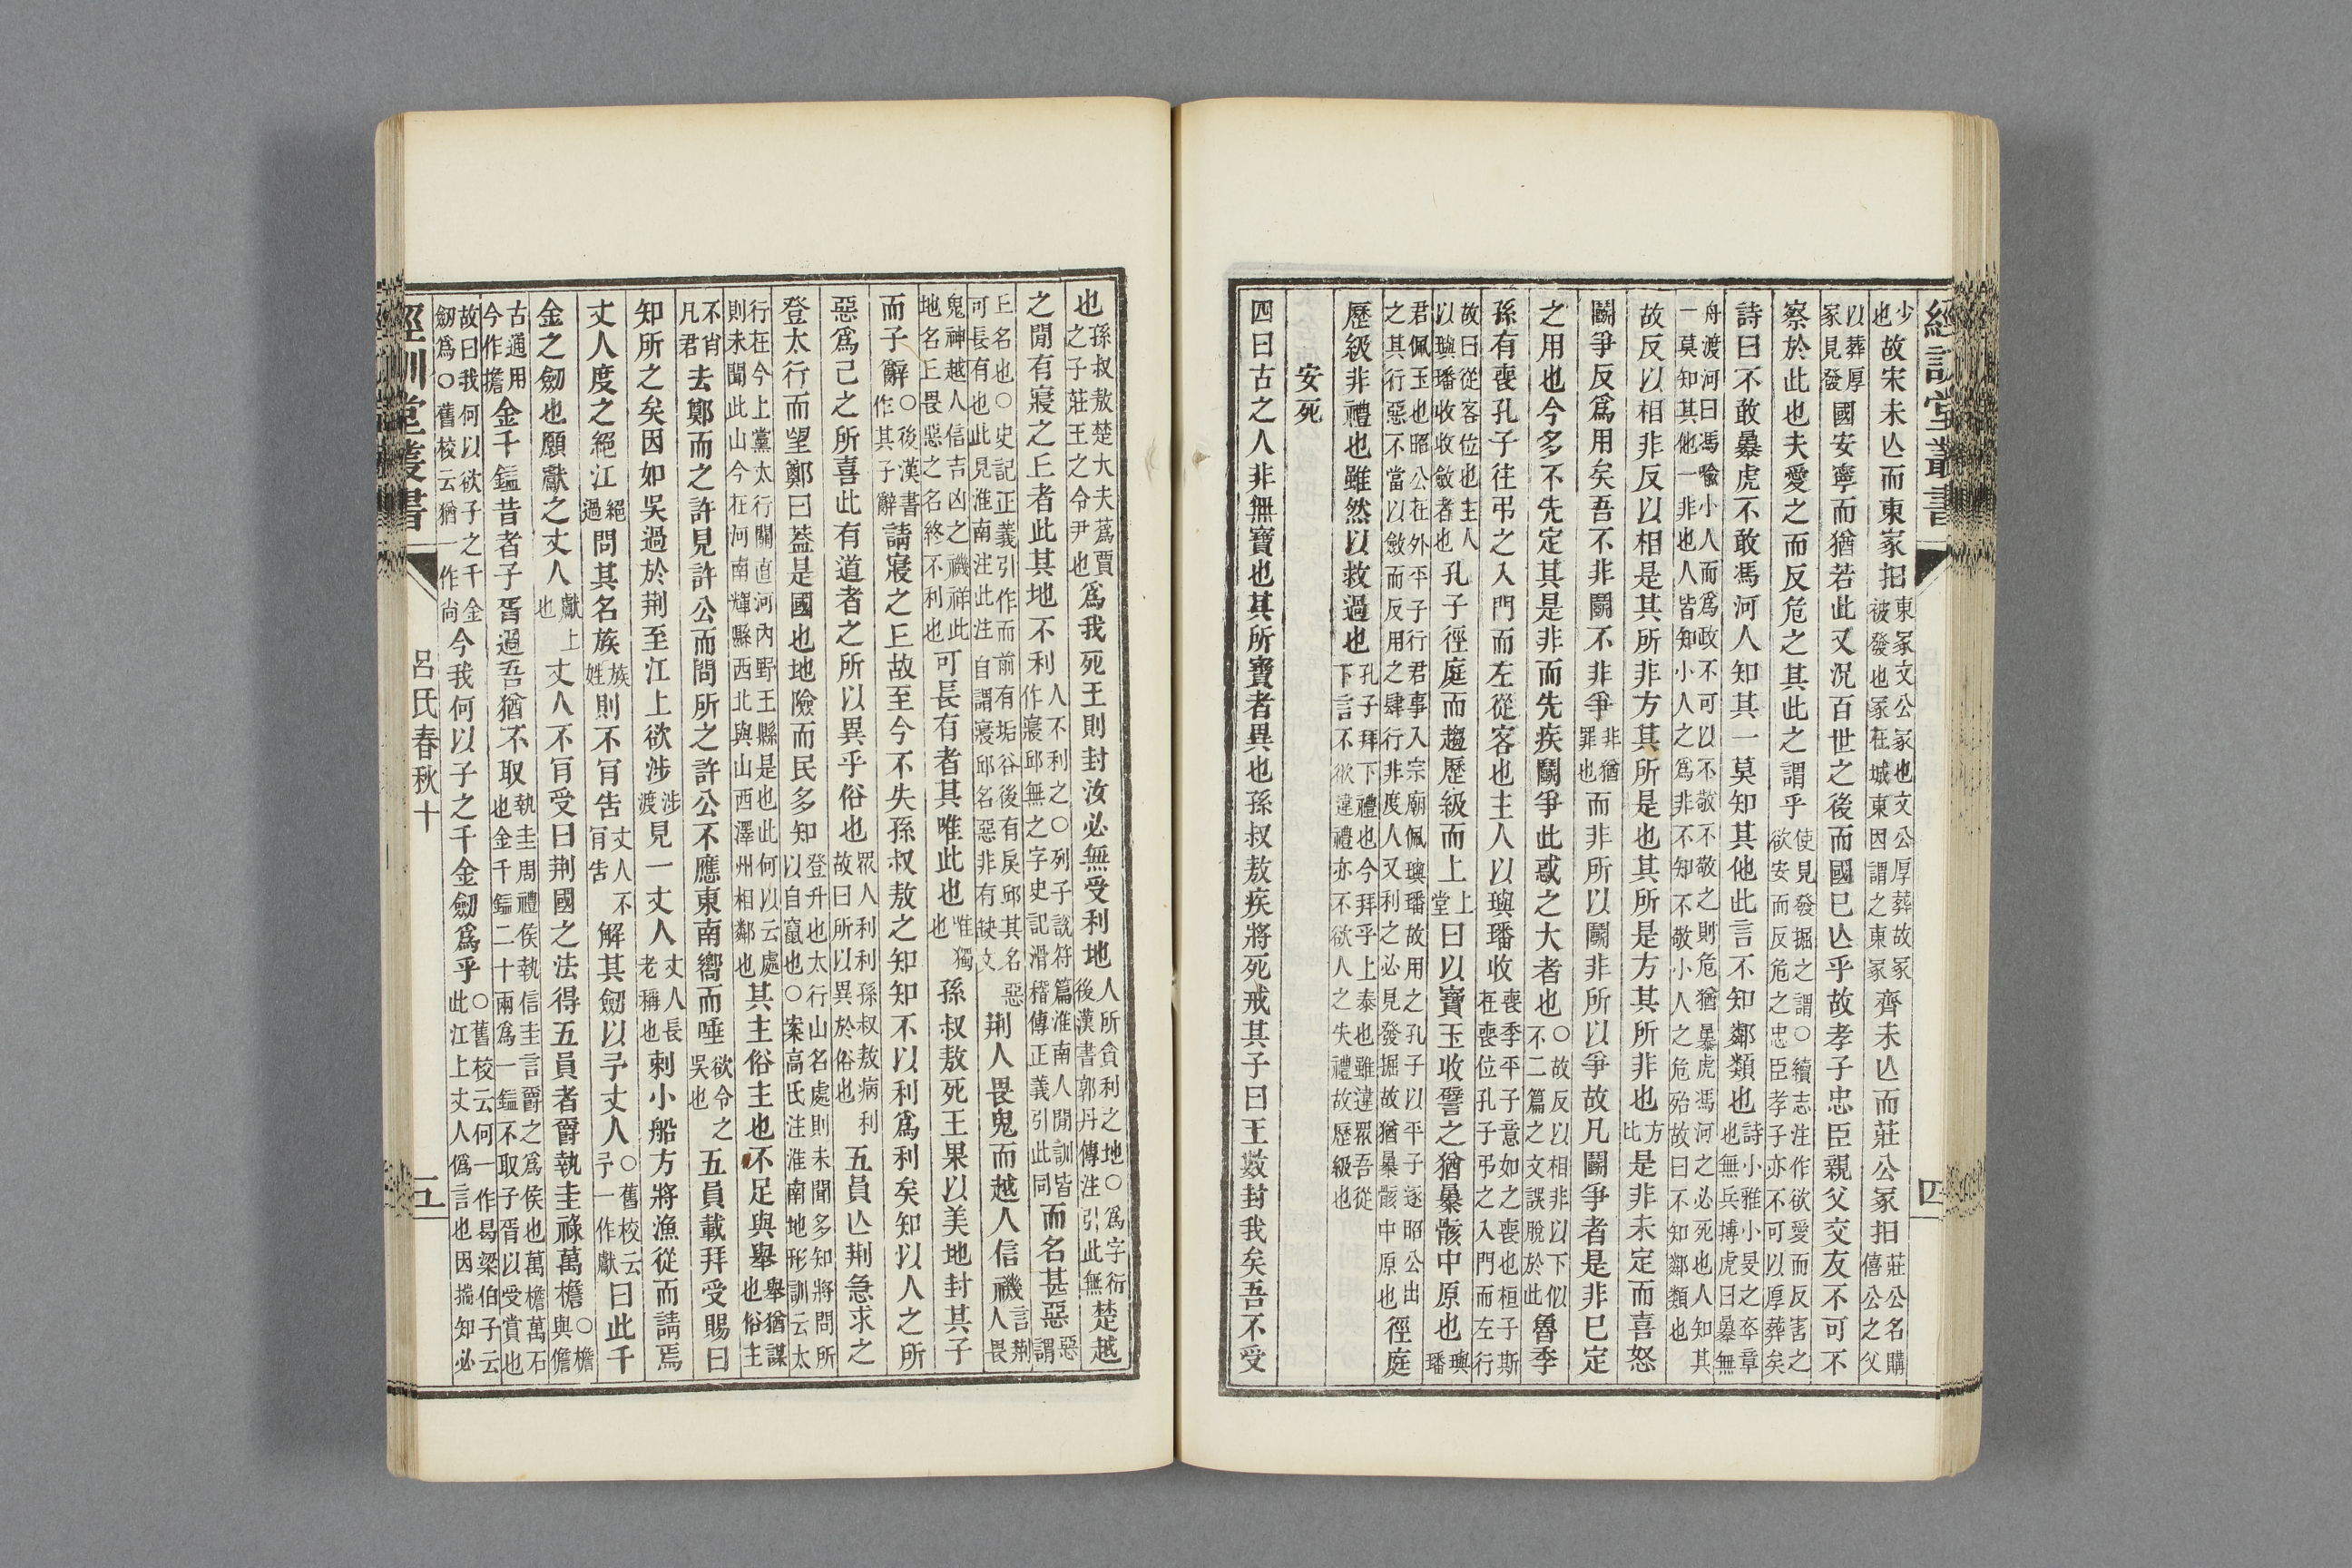 經訓堂叢書 四
少也故宋未亾而東冢抇東冢文公冢也文公厚葬故冢被發也冢在城東因謂之東冢齊未亾而莊公冢抇莊公名購僖公之父
以葬厚冢見發國安寧而猶若此又況百世之後而國已亾乎故孝子忠臣親父交友不可不
察於此也夫愛之而反危之其此之謂乎使見發掘之謂○續志注作欲愛而反害之欲安而反危之忠臣孝子亦不可以厚葬矣
詩曰不敢暴虎不敢馮河人知其一莫知其他此言不知鄰類也詩小雅小旻之卒章也無兵搏虎曰暴無
舟渡河曰馮喩小人而爲政不可以不敬不敬之則危猶暴虎馮河之必死也人知其一莫知其他一非也人皆知小人之爲非不知不敬小人之危殆故曰不知鄰類也
故反以相非反以相是其所非方其所是也其所是方其所非也方比是非未定而喜怒
鬭爭反爲用矣吾不非鬭不非爭非猶罪也而非所以鬭非所以爭故凡鬭爭者是非已定
之用也今多不先定其是非而先疾鬭爭此惑之大者也○故反以相非以下似不二篇之文誤脫於此魯季
孫有喪孔子往弔之入門而左從客也主人以璵璠收喪季平子意如之喪也桓子斯在喪位孔子弔之入門而左行
故曰從客位也主人以璵璠收收斂者也孔子徑庭而趨歷級而上上堂曰以寶玉收譬之猶暴骸中原也璵璠
君佩玉也昭公在外平子行君事入宗廟佩璵璠故用之孔子以平子逐昭公出之其行惡不當以斂而反用之肆行非度人又利之必見發掘故猶暴骸中原也徑庭
歷級非禮也雖然以救過也孔子拜下禮也今拜乎上泰也雖違眾吾從下言不欲違禮亦不欲人之失禮故歷級也
安死
四曰古之人非無寶也其所寶者異也孫叔敖疾將死戒其子曰王數封我矣吾不受
也孫叔敖楚大夫蔿賈之子莊王之令尹也爲我死王則封汝必無受利地人所貪利之地○爲字衍後漢書郭丹傳注引此無楚越
之閒有寢之丘者此其地不利人不利之○列子說符篇淮南人閒訓皆作寢邱無之字史記滑稽傳正義引此同而名甚惡惡謂
丘名也○史記正義引作而前有垢谷後有戾邱其名惡可長有也此見淮南注此注自謂寢邱名惡非有缺文荆人畏鬼而越人信禨言荆人畏
鬼神越人信吉凶之禨祥此地名丘畏惡之名終不利也可長有者其唯此也唯獨也孫叔敖死王果以美地封其子
而子辭○後漢書作其子辭請寢之丘故至今不失孫叔敖之知知不以利爲利矣知以人之所
惡爲己之所喜此有道者之所以異乎俗也眾人利利孫叔敖病利故曰所以異於俗也五員亾荆急求之
登太行而望鄭曰蓋是國也地險而民多知登升也太行山名處則未聞多知將問所以自竄也○案高氏注淮南地形訓云太
行在今上黨太行關直河內野王縣是也此何以云處則未聞此山今在河南輝縣西北與山西澤州相鄰也其主俗主也不足與舉舉猶謀也俗主
不肖凡君去鄭而之許見許公而問所之許公不應東南嚮而唾欲令之吳也五員載拜受賜曰
知所之矣因如吳過於荆至江上欲涉涉渡見一丈人丈人長老稱也刺小船方將漁從而請焉
丈人度之絕江絕過問其名族族姓則不肎告丈人不肎告解其劒以予丈人○舊校云予一作獻曰此千
金之劒也願獻之丈人獻上也丈人不肎受曰荆國之法得五員者爵執圭祿萬檐○檐與儋
古通用今作擔金千鎰昔者子胥過吾猶不取執圭周禮侯執信圭言爵之爲侯也萬檐萬石也金千鎰二十兩爲一鎰不取子胥以受賞也
故曰我何以欲子之千金劒爲○舊校云猶一作尚今我何以子之千金劒爲乎○舊校云何一作曷梁伯子云此江上丈人僞言也因揣知必
經訓堂叢書 呂氏春秋十 五